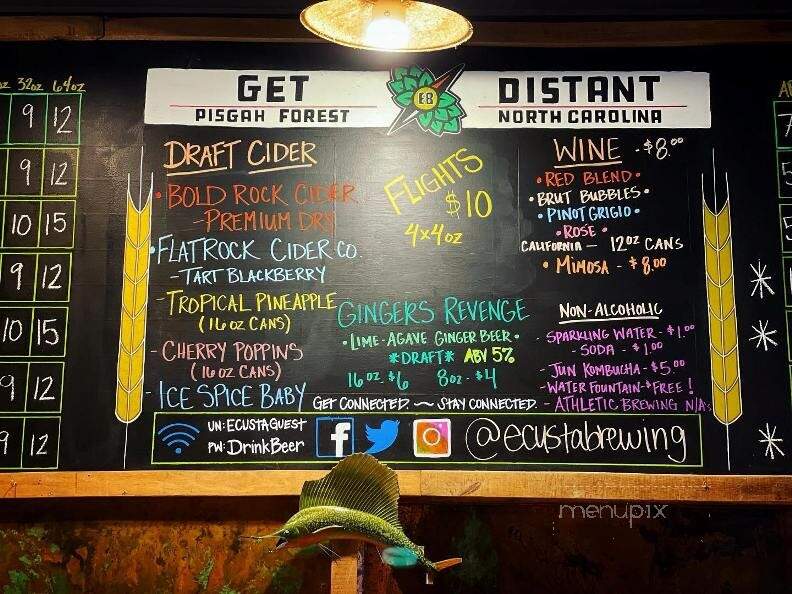 GET DISTANT
PISGAH FOREST NORTH CAROLINA
EB
32oz 64oz
9 12
9 12
10 15
9 12
10 15
9 12
9 12
DRAFT CIDER
• BOLD ROCK CIDER
- PREMIUM DRY
• FLATROCK CIDER CO.
- TART BLACKBERRY
- TROPICAL PINEAPPLE
(16 oz CANS)
- CHERRY POPPINS
(16 oz CANS)
- ICE SPICE BABY
FLIGHTS
$10
4x4oz
GINGERS REVENGE
• LIME-AGAVE GINGER BEER •
*DRAFT* ABV 5%
16oz $6 8oz - $4
GET CONNECTED. ~ STAY CONNECTED.
WINE - $8.00
• RED BLEND •
• BRUT BUBBLES •
• PINOT GRIGIO •
• ROSE •
CALIFORNIA — 12oz CANS
• MIMOSA - $8.00
NON-ALCOHOLIC
- SPARKLING WATER - $1.00
- SODA - $1.00
- JUN KOMBUCHA - $5.00
- WATER FOUNTAIN - $FREE!
- ATHLETIC BREWING N/A's
UN: ECUSTAGUEST
PW: DrinkBeer
@ecustabrewing
menupix